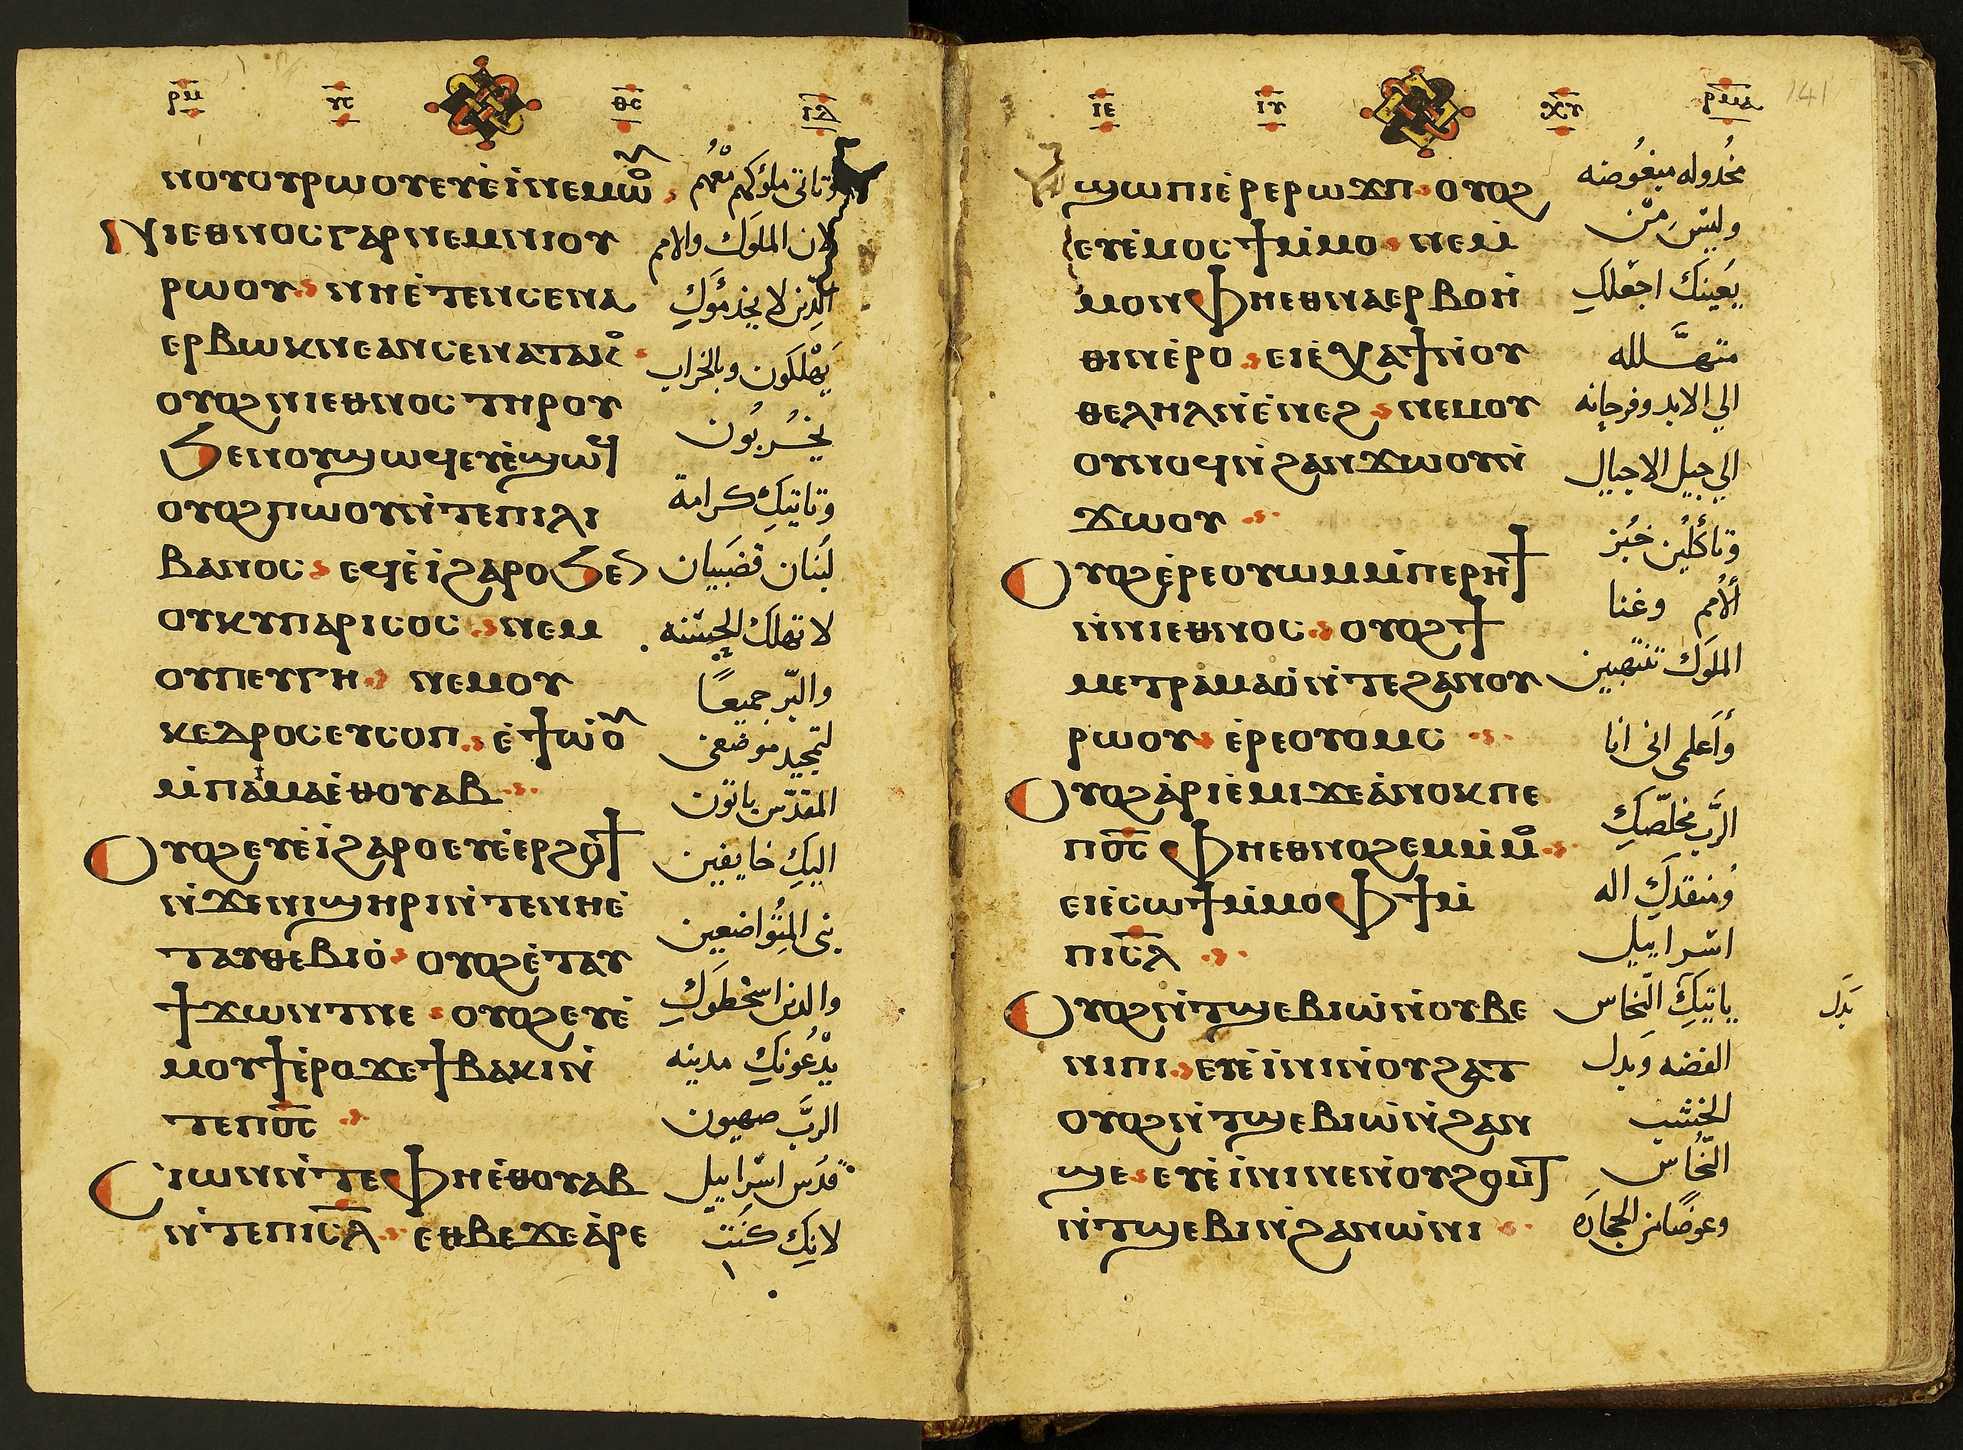 ⲣⲙ ⲩⲥ ⲑⲥ ⲓⲇ
ⲛⲟⲩⲟⲩⲣⲱⲟⲩⲉⲩⲉ̀ⲓ̀ⲛⲉⲙⲱ̊
ⲛⲓⲉⲑⲛⲟⲥⲅⲁⲣⲛⲉⲙⲛⲓⲟⲩ
ⲣⲱⲟⲩ ⲛⲏⲉ̀ⲧⲉⲛⲥⲉⲛⲁ
ⲉⲣⲃⲱⲕⲛⲉⲁⲛⲥⲉⲛⲁⲧⲁⲕ̊
ⲟⲩⲟϩⲛⲓⲉⲑⲛⲟⲥ ⲧⲏⲣⲟⲩ
ϧⲉⲛⲟⲩϣⲱϥⲉⲩⲉ̀ϣⲱϥ
ⲟⲩⲟϩⲡⲱⲟⲩⲛ̀ⲧⲉⲡⲓⲗⲓ
ⲃⲁⲛⲟⲥ ⲉϥⲉ̀ⲓ̀ϩⲁⲣⲟϧⲉⲛ
ⲟⲩⲕⲩⲡⲁⲣⲓⲥⲟⲥ ⲛⲉⲙ
ⲟⲩⲡⲉⲩⲅⲏ ⲛⲉⲙⲟⲩ
ⲕⲉⲇⲣⲟⲥⲉⲩⲥⲟⲡ ⲉ̀ϯⲱ̀ⲟ
ⲙ̀ⲡⲁⲙⲁⲉ̀ⲑⲟⲩⲁⲃ
ⲟⲩⲟϩⲉⲩⲉ̀ⲓ̀ϩⲁⲣⲟⲉⲩⲉ̀ⲉⲣϩⲟϯ
ⲛ̀ϫⲉⲛⲓϣⲏⲣⲓⲛ̀ⲧⲉⲛⲏⲉ̀
ⲧⲁⲩⲑⲉⲃⲓⲟ̀ ⲟⲩⲟϩⲉ̀ⲧⲁⲩ
ϯϫⲱⲛⲧⲛⲉ ⲟⲩⲟϩⲉⲩⲉ̀
ⲙⲟⲩϯⲉ̀ⲣⲟϫⲉϯⲃⲁⲕⲓⲛ̀
ⲧⲉⲡⲟ̅ⲥ̅
ⲥⲓⲱⲛⲛ̀ⲧⲉⲫⲏⲉ̀ⲑⲟⲩⲁⲃ
ⲛ̀ⲧⲉⲡⲓⲥ̅ⲗ̅ ⲉⲑⲃⲉϫⲉⲁ̀ⲣⲉ
وتاتي ملوكهم معهم
لان الملوك والامم
الذين لا يخدموك
يهلكون وبالخراب
يخربون
وتاتيك كرامة
لبنان
والبر جميعا
لتمجيد موضعي
المقدس ياتون
اليك خايفين
بني المتواضعين
والدين اسخطوك
يدعونك مدينه
الرب صهيون
قدس اسراييل
لانك كنت
ⲓⲉ ⲓⲩ ⲭⲩ ⲣⲙⲁ 141
ϣⲱⲡⲓⲉ̀ⲣⲉⲣⲱϫⲡ ⲟⲩⲟϩ
ⲉⲩⲉ̀ⲙⲟⲥϯⲙ̀ⲙⲟ ⲛⲉⲙ̀
ⲙⲟⲛⲫⲏⲉⲑⲛⲁⲉⲣⲃⲟⲏ
ⲑⲓⲛⲉ̀ⲣⲟ ⲉⲓⲉ̀ⲭⲁϯⲛ̀ⲟⲩ
ⲑⲉⲗⲏⲗⲛ̀ⲉ̀ⲛⲉϩ ⲛⲉⲙⲟⲩ
ⲟⲩⲛⲟϥⲛ̀ϩⲁⲛϫⲱⲟⲩⲛ̀
ϫⲱⲟⲩ
ⲟⲩⲟϩⲉ̀ⲣⲉⲟⲩⲱⲙⲙ̀ⲡⲉⲣⲏϯ
ⲛ̀ⲛⲓⲉⲑⲛⲟⲥ ⲟⲩⲟϩϯ
ⲙⲉⲧⲣⲁⲙⲁⲟ̀ⲛ̀ⲧⲉϩⲁⲛⲟⲩ
ⲣⲱⲟⲩ ⲉ̀ⲣⲉⲟⲩⲟⲙⲥ
ⲟⲩⲟϩⲁ̀ⲣⲓⲉ̀ⲙⲓϫⲉⲁ̀ⲛⲟⲕⲡⲉ
ⲡⲟ̅ⲥ̅ ⲫⲏⲉⲑⲛⲟϩⲉⲙⲙ̀ⲙ̊
ⲉⲓⲉ̀ⲥⲱϯⲙ̀ⲙⲟⲫϯⲙ̀
ⲡⲓⲥ̅ⲗ̅
ⲟⲩⲟϩⲛ̀ⲧϣⲉⲃⲓⲱ̀ⲛ̀ⲟⲩⲃⲉ
ⲛⲓⲡⲓ ⲉⲩⲉ̀ⲓ̀ⲛⲓⲛ̀ⲟⲩϩⲁⲧ
ⲟⲩⲟϩⲛ̀ⲧϣⲉⲃⲓⲱ̀ⲛ̀ϩⲁⲛ
ϣⲉ ⲉⲩⲉ̀ⲓ̀ⲛⲓⲛⲉⲛ̀ⲟⲩϩⲟⲙⲧ
ⲛ̀ⲧϣⲉⲃⲓⲛ̀ϩⲁⲛⲱ̀ⲛⲓ
مخدوله مبغوضه
وليس من
يعينك اجعلك
متهلله
الي الابد وفرحانه
الي جيل الاجيال
وتاكلين خبز
الامم وغنا
الملوك
واعلمي اني انا
الرب مخلصك
ومنقدك اله
اسراييل
ياتيك النحاس
بدل
الفضه وبدل
الخشب
النحاس
وعوضا من الحجاره